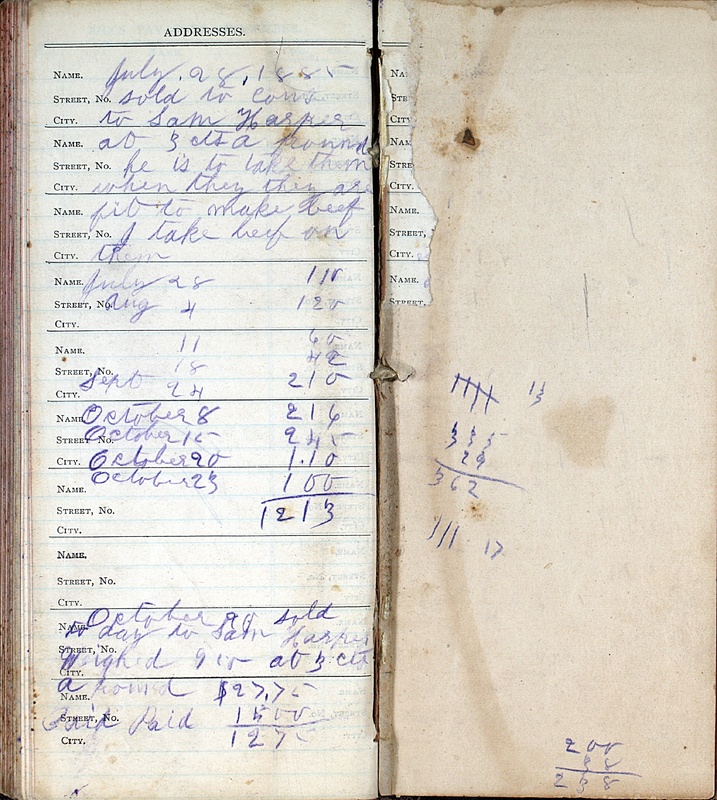 ADDRESSES.
NAME. July, 28, 1885
STREET, No. sold to Cows
CITY. to Sam Harper
NAME. at 3 cts a pound
STREET, No. he is to take them
CITY. when they they are
NAME. fit to make beef
STREET, No. I take beef on
CITY. them
NAME. July 28 110
STREET, No. Aug 4 120
CITY.
NAME. 11 60
STREET, No. 18 42
CITY. Sept 24 210
NAME. October 8 216
STREET, No. October 15 245
CITY. October 20 1.10
NAME. October 23 100
STREET, No. 1213
CITY.
NAME.
STREET, No.
CITY.
NAME. October 20 sold
STREET, No. to day to Sam Harper
CITY. Weighed 910 at 3 cts
NAME. a pound $27.75
STREET, No. Paid 1500
CITY. 1275
NA
STRE
CITY
NAM
STREE
CITY.
NAME.
STREET,
CITY.
NAME.
STREET.
13
335
362
17
200
238